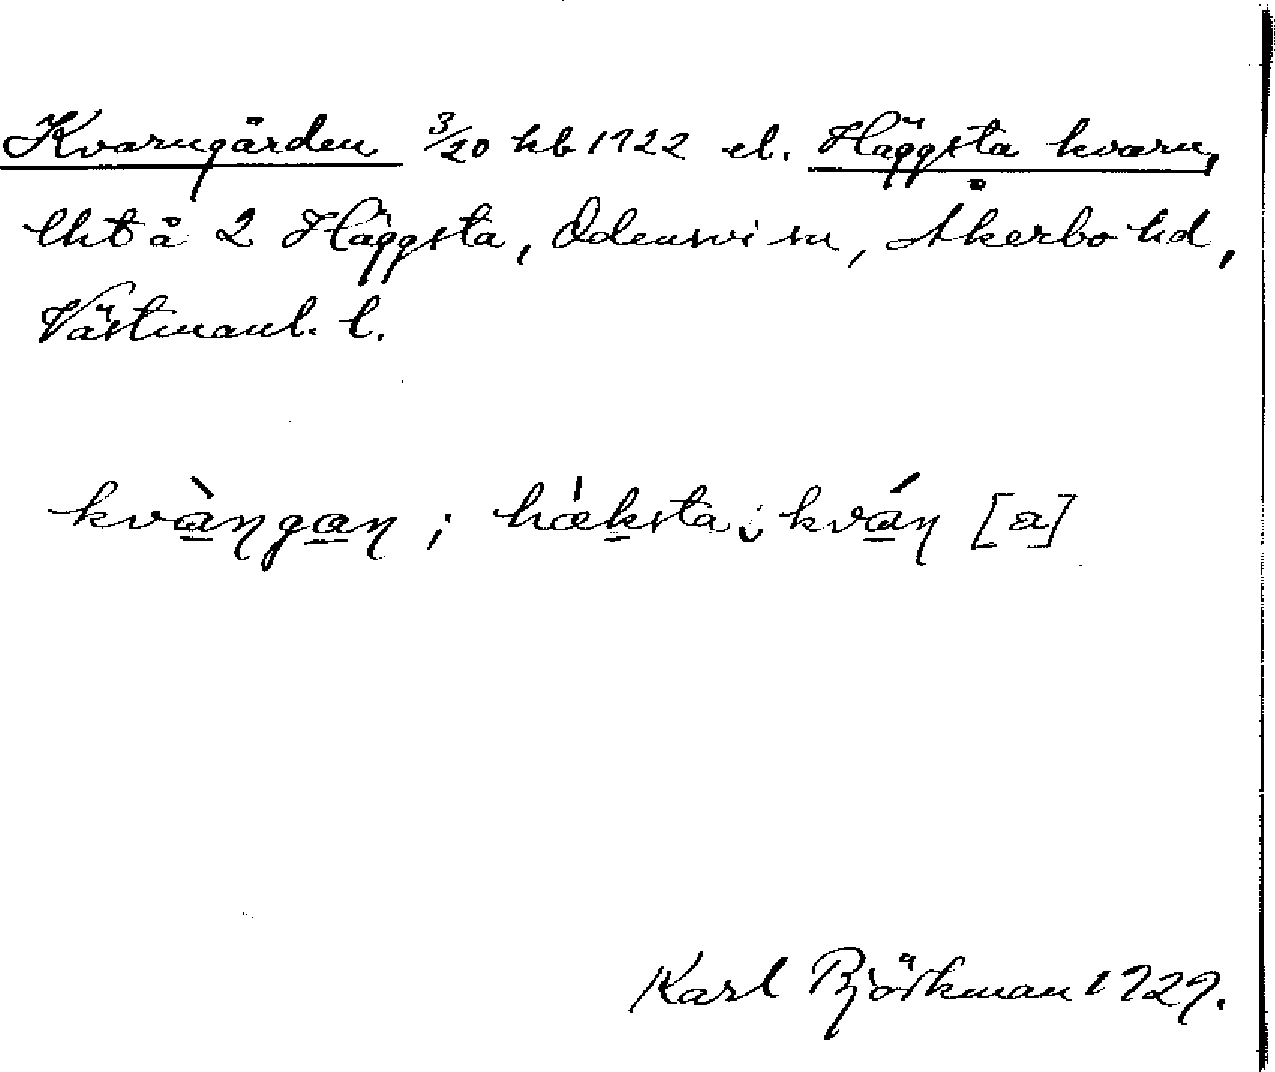 Kvarngärden 3/20 hb 1922 el. Häggsta kvarn,
lht å 2 Häggsta, Odensvi sn, Åkerbo hd,
Västmanl. l.
kvàŋgaŋ ; hàksta kváŋ [a]
Karl Björkman 1929.